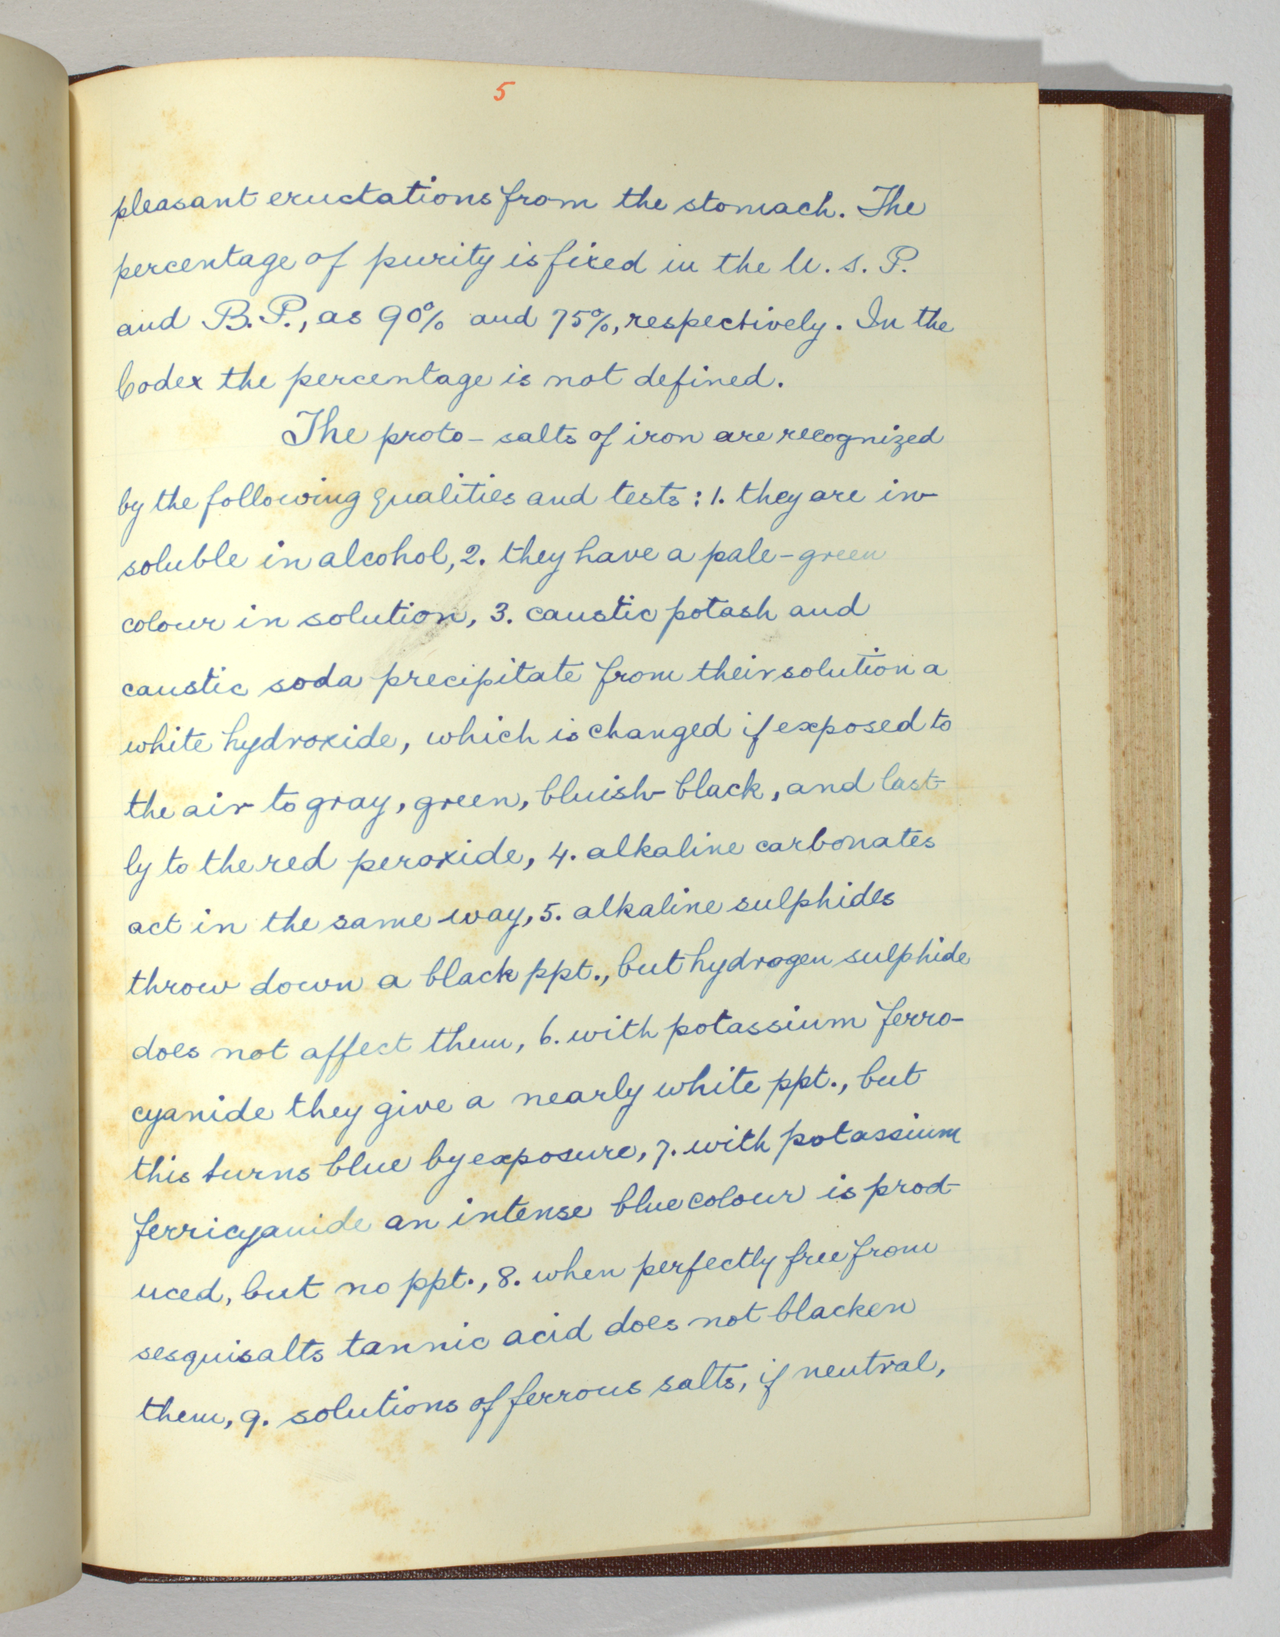 5
pleasant eructations from the stomach. The
percentage of purity is fixed in the U. S. P.
and B.P., as 90% and 75%, respectively. In the
Codex the percentage is not defined.
The proto-salts of iron are recognized
by the following qualities and tests: 1. they are in-
soluble in alcohol, 2. they have a pale-green
colour in solution, 3. caustic potash and
caustic soda precipitate from their solution a
white hydroxide, which is changed if exposed to
the air to gray, green, bluish-black, and last-
ly to the red peroxide, 4. alkaline carbonates
act in the same way, 5. alkaline sulphides
throw down a black ppt., but hydrogen sulphide
does not affect them, 6. with potassium ferro-
cyanide they give a nearly white ppt., but
this turns blue by exposure, 7. with potassium
ferricyanide an intense blue colour is prod-
uced, but no ppt., 8. when perfectly free from
sesquisalts tannic acid does not blacken
them, 9. solutions of ferrous salts, if neutral,